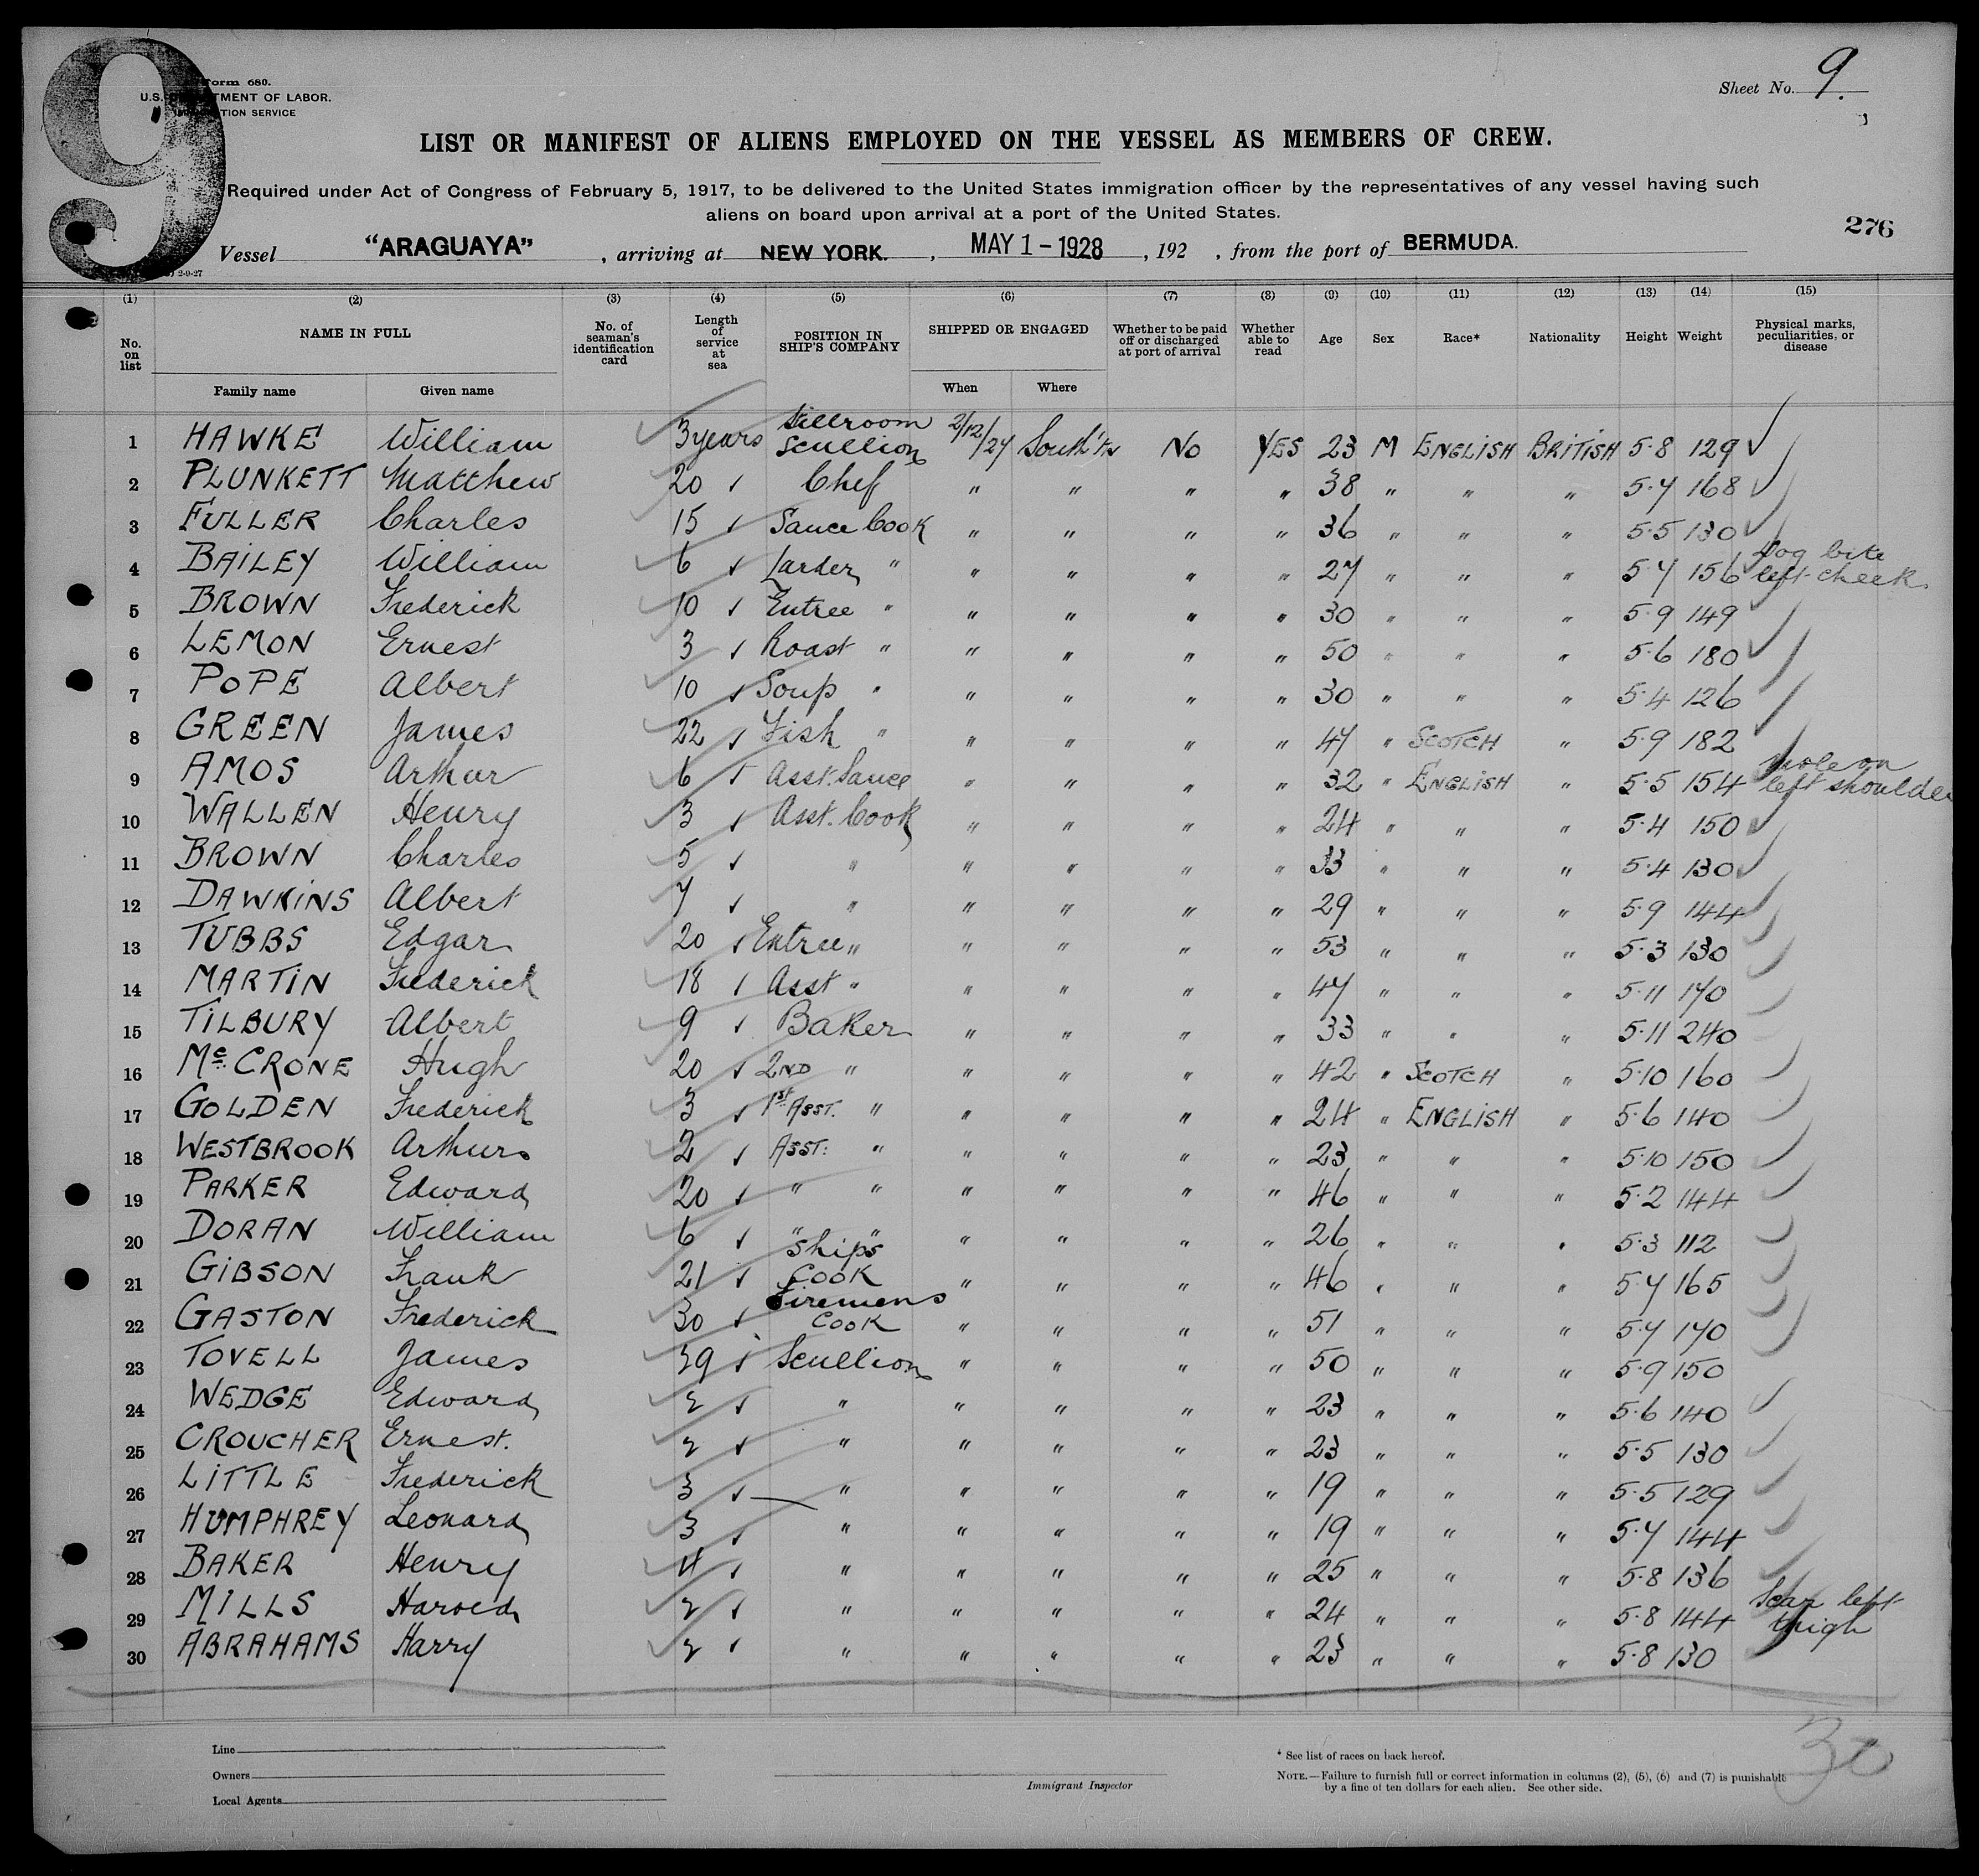 9
Form 680.
U.S. DEPARTMENT OF LABOR.
IMMIGRATION SERVICE
Sheet No. 9.
LIST OR MANIFEST OF ALIENS EMPLOYED ON THE VESSEL AS MEMBERS OF CREW.
Required under Act of Congress of February 5, 1917, to be delivered to the United States immigration officer by the representatives of any vessel having such
aliens on board upon arrival at a port of the United States.
276
Vessel "ARAGUAYA", arriving at NEW YORK., MAY 1-1928, 192 , from the port of BERMUDA.
2-9-27
(1) (2) (3) (4) (5) (6) (7) (8) (9) (10) (11) (12) (13) (14) (15)
No. on list NAME IN FULL No. of seaman's identification card Length of service at sea POSITION IN SHIP'S COMPANY SHIPPED OR ENGAGED Whether to be paid off or discharged at port of arrival Whether able to read Age Sex Race* Nationality Height Weight Physical marks, peculiarities, or disease
Family name Given name When Where
1 HAWKE William 3 years Stillroom Scullion 2/12/27 South'tn No YES 23 M ENGLISH BRITISH 5·8 129
2 PLUNKETT Matthew 20 Chef " " " " 38 " " " 5·7 168
3 FULLER Charles 15 Sauce Cook " " " " 36 " " " 5·5 130
4 BAILEY William 6 Larder " " " " " 27 " " " 5·7 156 Dog bite left cheek
5 BROWN Frederick 10 Entree " " " " " 30 " " " 5·9 149
6 LEMON Ernest 3 Roast " " " " " 50 " " " 5·6 180
7 POPE Albert 10 Soup " " " " " 30 " " " 5·4 126
8 GREEN James 22 Fish " " " " " 47 " SCOTCH " 5·9 182
9 AMOS Arthur 6 Asst. Sauce " " " " 32 " ENGLISH " 5·5 154 mole on left shoulder
10 WALLEN Henry 3 Asst. Cook " " " " 24 " " " 5·4 150
11 BROWN Charles 5 " " " " " 33 " " " 5·4 130
12 DAWKINS Albert 7 " " " " " 29 " " " 5·9 144
13 TUBBS Edgar 20 Entree " " " " " 53 " " " 5·3 130
14 MARTIN Frederick 18 Asst " " " " " 47 " " " 5·11 170
15 TILBURY Albert 9 Baker " " " " 33 " " " 5·11 240
16 McCRONE Hugh 20 2ND " " " " " 42 " SCOTCH " 5·10 160
17 GOLDEN Frederick 3 1st ASST. " " " " " 24 " ENGLISH " 5·6 140
18 WESTBROOK Arthur 2 ASST: " " " " " 23 " " " 5·10 150
19 PARKER Edward 20 " " " " " " 46 " " " 5·2 144
20 DORAN William 6 " " " " " " 26 " " " 5·3 112
21 GIBSON Frank 21 Ships Cook " " " " 46 " " " 5·7 165
22 GASTON Frederick 30 Firemens Cook " " " " 51 " " " 5·7 170
23 TOVELL James Scullion " " " " 50 " " " 5·9 150
24 WEDGE Edward 2 " " " " " 23 " " " 5·6 140
25 CROUCHER Ernest. 2 " " " " " 23 " " " 5·5 130
26 LITTLE Frederick 3 " " " " " 19 " " " 5·5 129
27 HUMPHREY Leonard 3 " " " " " 19 " " " 5·7 144
28 BAKER Henry 4 " " " " " 25 " " " 5·8 136
29 MILLS Harold 2 " " " " " 24 " " " 5·8 144 Scar left thigh
30 ABRAHAMS Harry 2 " " " " " 23 " " " 5·8 130
30
Line
Owners
Local Agents
Immigrant Inspector
* See list of races on back hereof.
NOTE.—Failure to furnish full or correct information in columns (2), (5), (6) and (7) is punishable
by a fine of ten dollars for each alien. See other side.